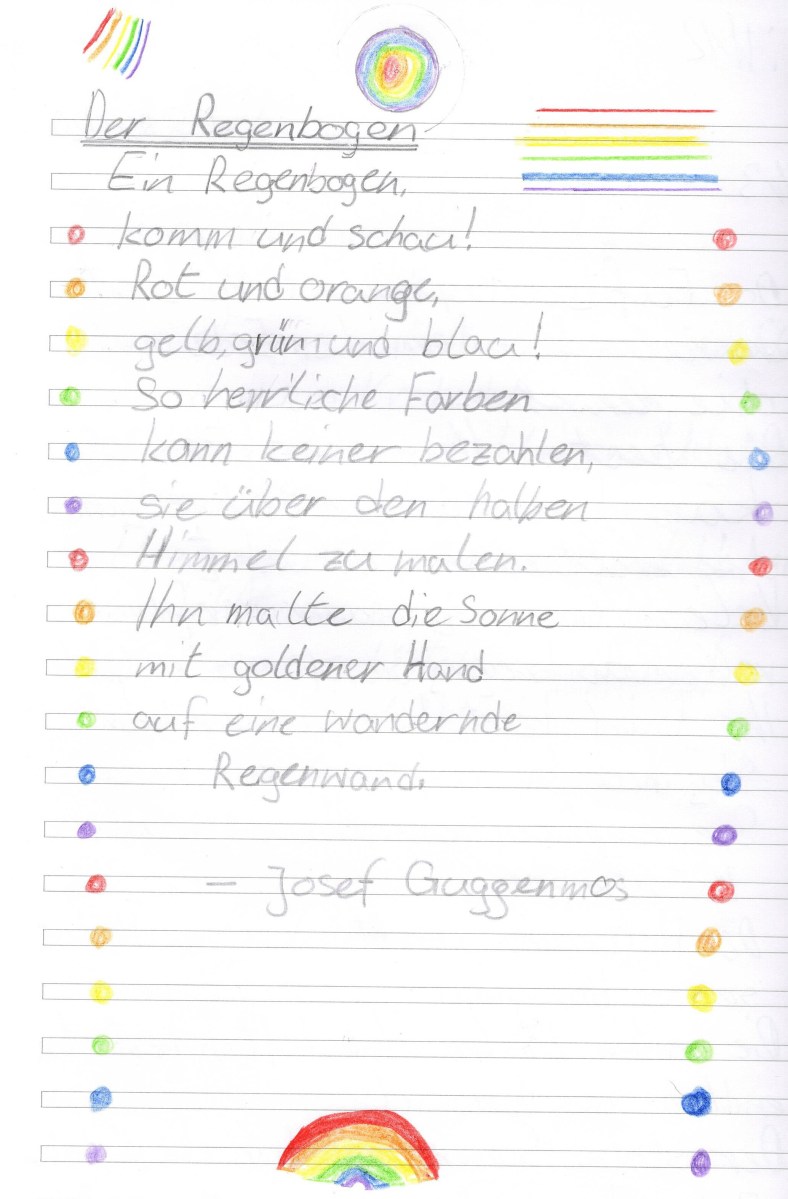 Der Regenbogen
Ein Regenbogen,
komm und schau!
Rot und orange,
gelb, grün und blau!
So herrliche Farben
kann keiner bezahlen,
sie über den halben
Himmel zu malen.
Ihn malte die Sonne
mit goldener Hand
auf eine wandernde
Regenwand.
– Josef Guggenmos